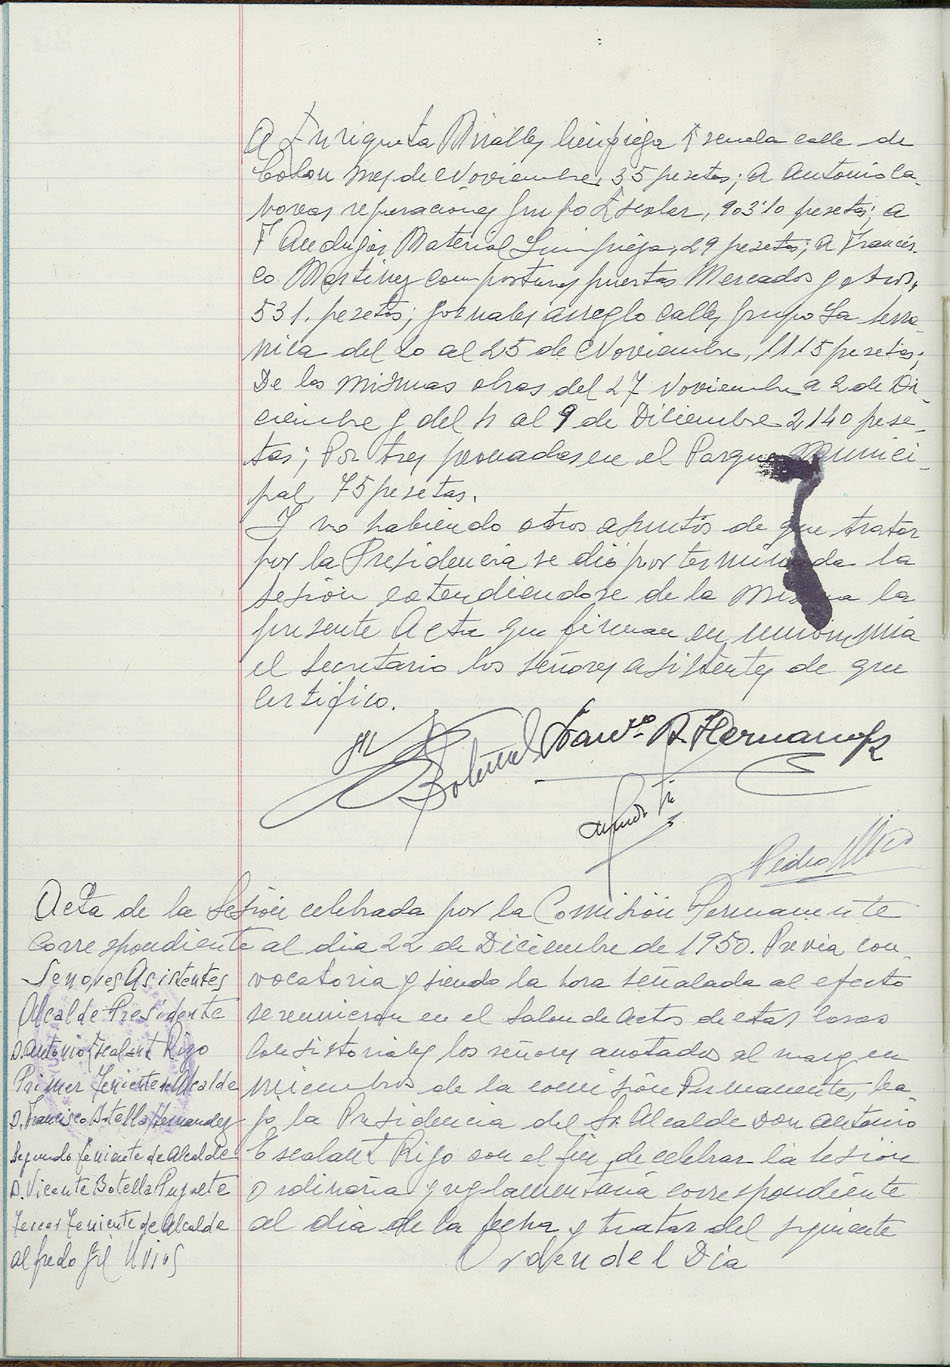 A Enriqueta Miralles limpieza Escuela calle de
Colon mes de Noviembre, 35 pesetas; A Antonio Ca-
novas reparaciones Grupo Escolar, 903'10 pesetas; a
F Andujar Material Limpieza, 29 pesetas; a Francis-
co Martinez composturas puertas Mercados y otros,
531. pesetas; jornales arreglo calles Grupo La
del 20 al 25 de Noviembre, 1115 pesetas;
De las mismas obras del 27 Noviembre a 2 de Di-
ciembre y del 4 al 9 de Diciembre 2,140 pese-
tas; Por tres jornadas en el Parque Munici-
pal, 75 pesetas.
Y no habiendo otros asuntos de que tratar
por la Presidencia se dió por terminada la
sesión extendiendose de la Misma la
presente Acta que firman en
el Secretario los señores asistentes de que
Certifico.
Botella Franco. B. Hernandez
Alfredo Gil
Pedro
Acta de la Sesión celebrada por la Comisión Permanente
Correspondiente al dia 22 de Diciembre de 1950. Previa con-
Señores Asistentes
Alcalde Presidente
D. Antonio Escalant Rigo
Primer Teniente de Alcalde
D. Francisco Botella Hernandez
Segundo teniente de Alcalde
D. Vicente Botella Puzoete
Tercer Teniente de Alcalde
alfredo Gil Urios
vocatoria y siendo la hora señalada al efecto
se reunieron en el Salon de Actos de estas Casas
Consistoriales los señores anotados al margen
miembros de la comisión Permanente, ba-
jo, la Presidencia del Sr. Alcalde Don Antonio
Escalant Rigo con el fin de celebrar la sesión
Ordinaria y reglamentaria correspondiente
al dia de la fecha y tratar del siguiente
Orden del Dia